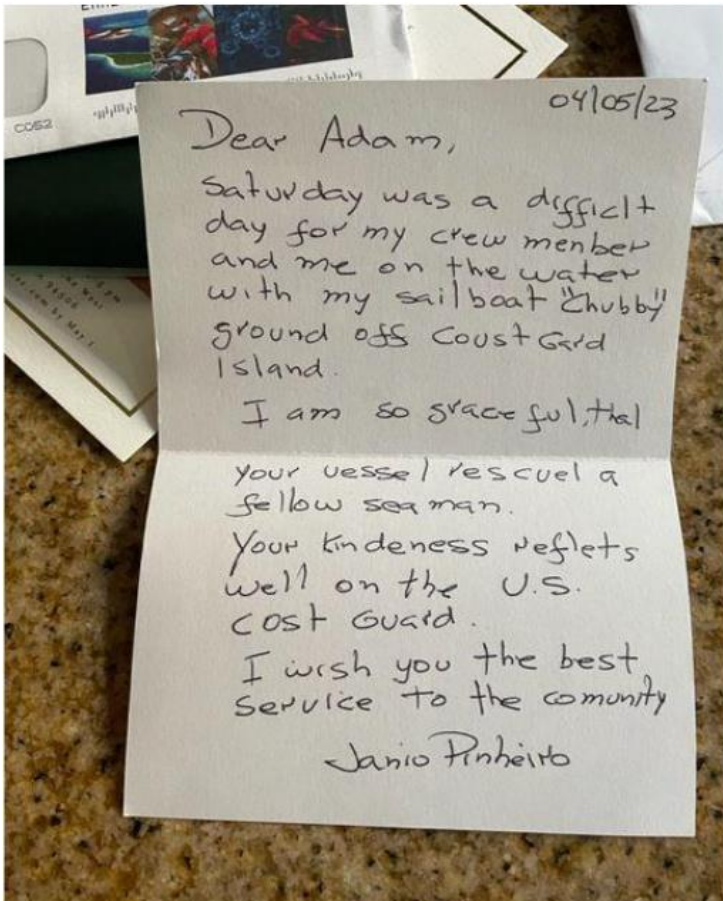 COS2
04/05/23
Dear Adam,
Saturday was a difficlt
day for my crew menber
and me on the water
with my sailboat "Chubby"
ground off Coust Gard
Island.
I am so graceful, thal
your vessel rescuel a
fellow sea man.
Your kindeness reflets
well on the U.S.
Cost Guard.
I wish you the best
service to the comunity
Janio Pinheiro